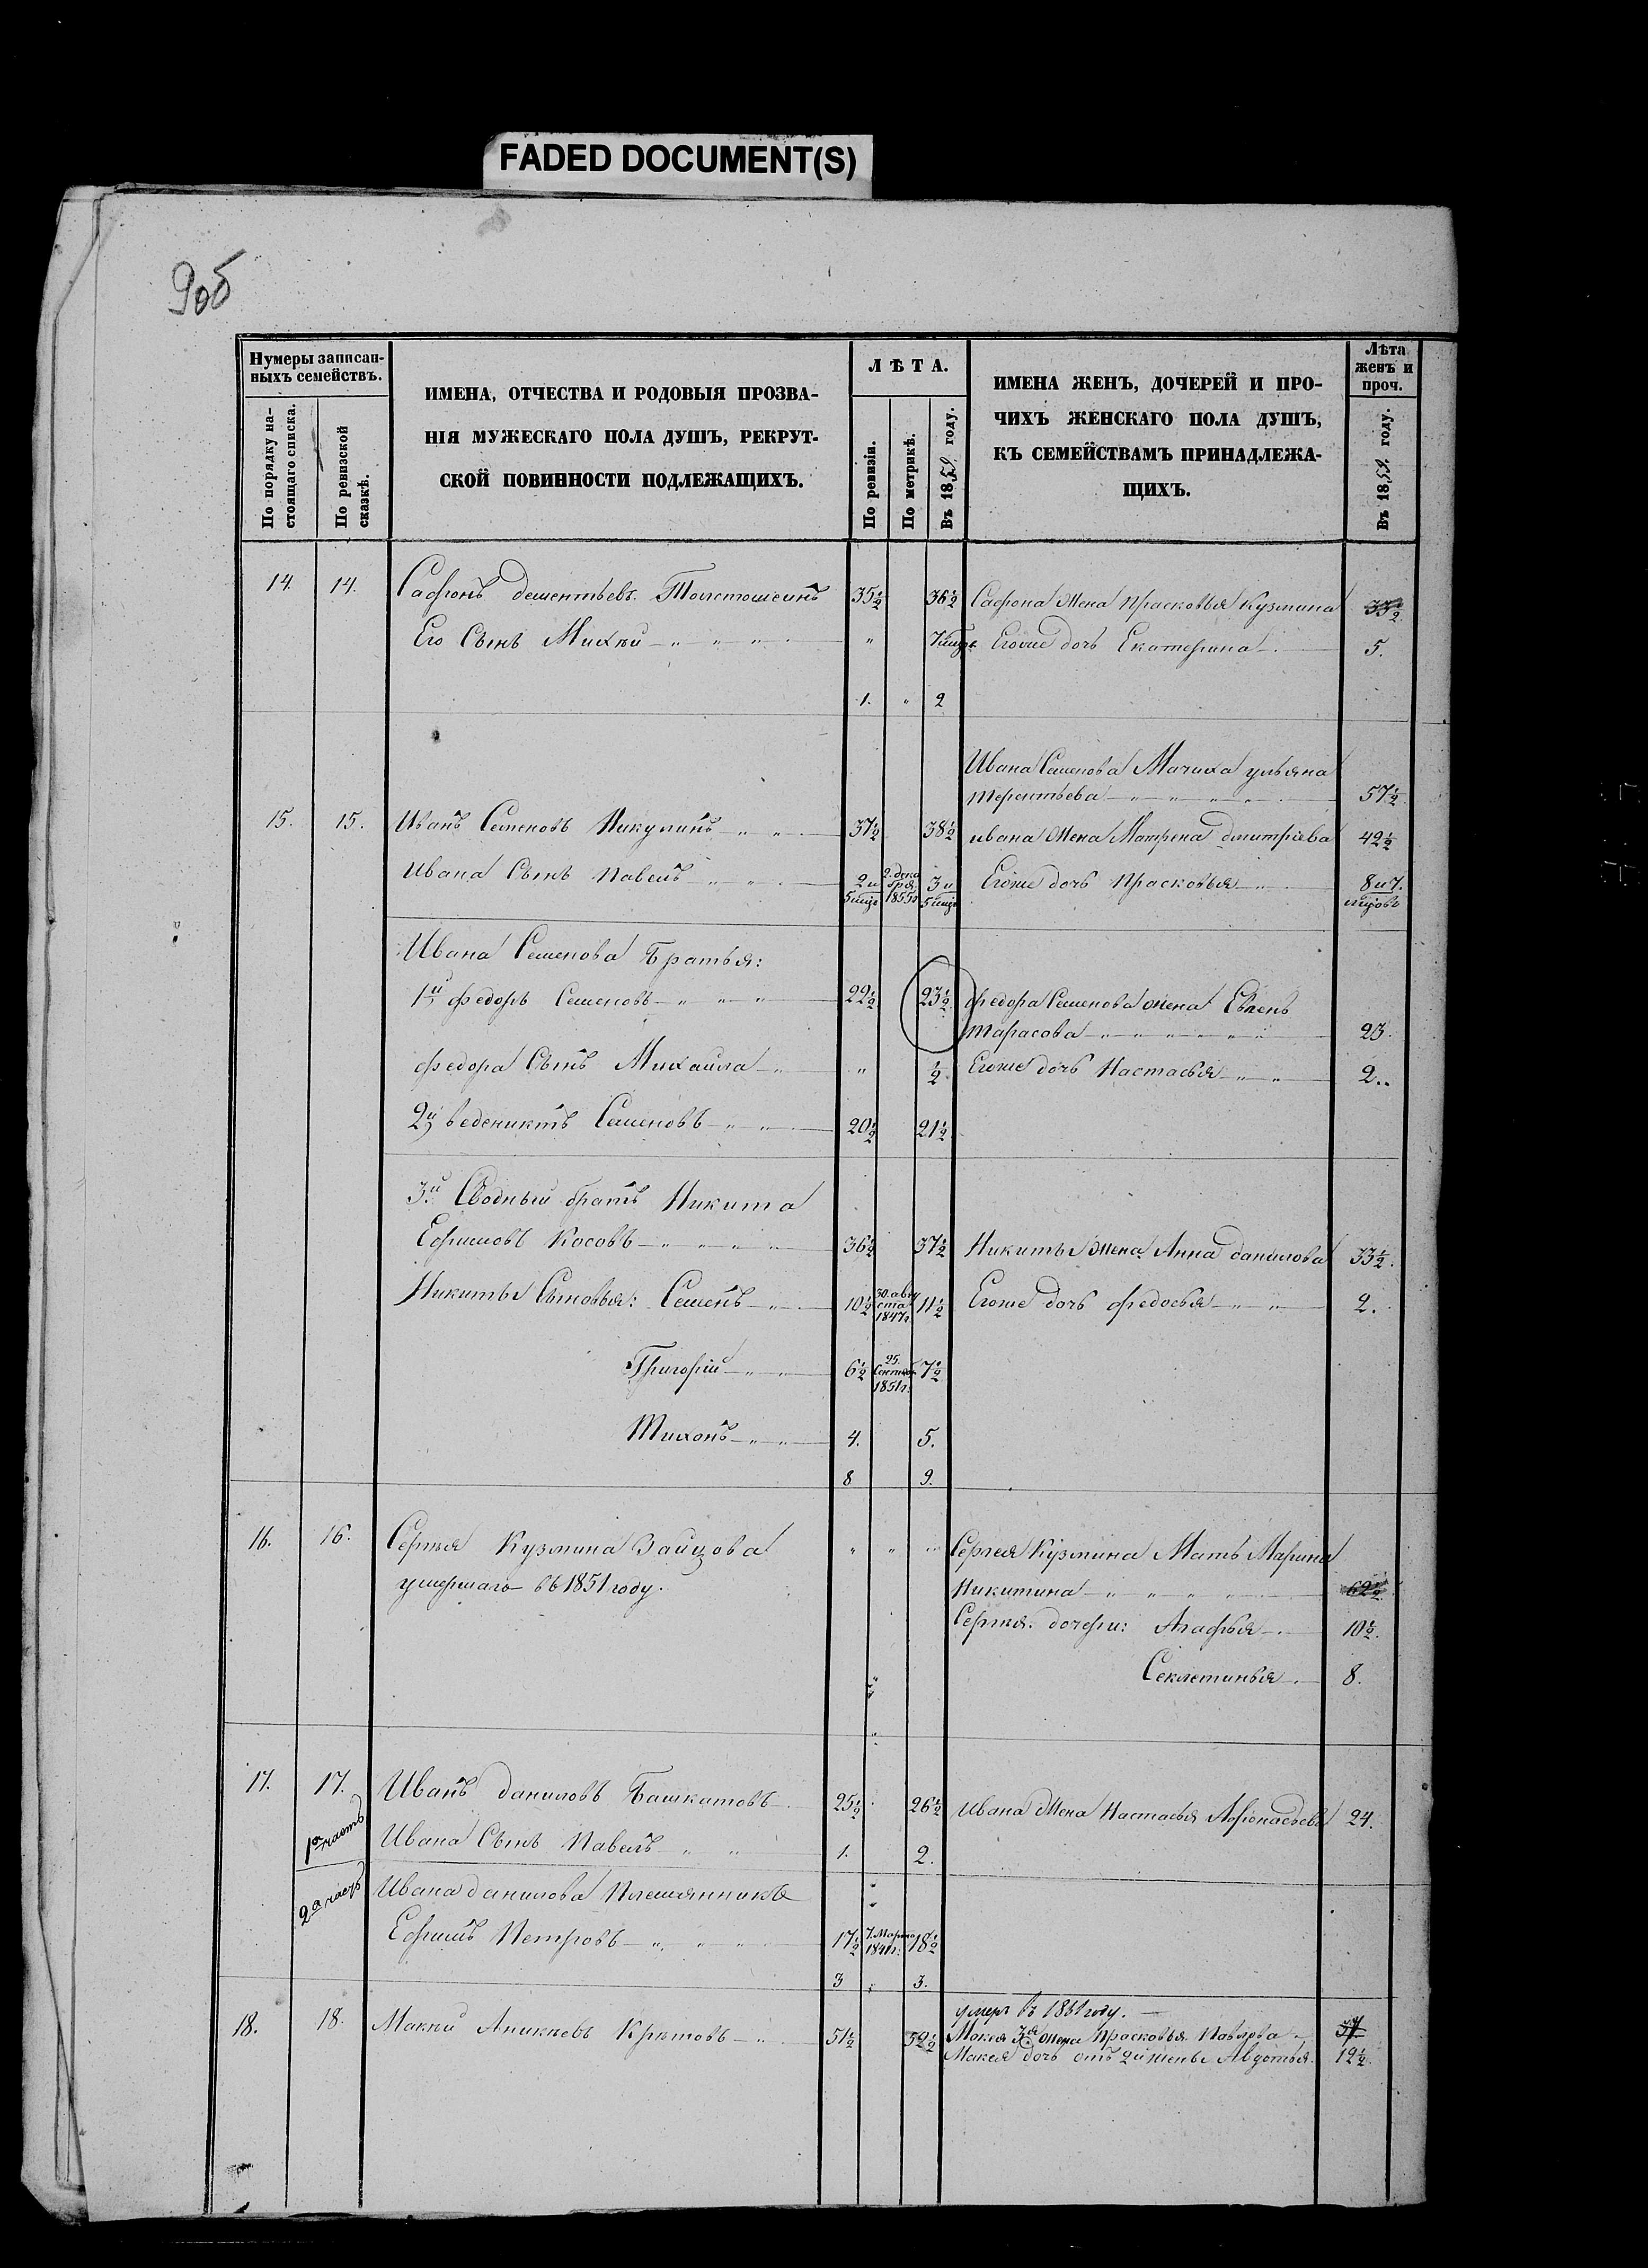 FADED DOCUMENT(S)
9об
Нумеры записан-
ныхъ семействъ.
По порядку на-
стоящаго списка.
По ревизской
сказкѣ.
ИМЕНА, ОТЧЕСТВА И РОДОВЫЯ ПРОЗВА-
НІЯ МУЖЕСКАГО ПОЛА ДУШЪ, РЕКРУТ-
СКОЙ ПОВИННОСТИ ПОДЛЕЖАЩИХЪ.
ЛѢТА.
По ревизіи.
По метрикѣ.
Въ 1859 году.
ИМЕНА ЖЕНЪ, ДОЧЕРЕЙ И ПРО-
ЧИХЪ ЖЕНСКАГО ПОЛА ДУШЪ,
КЪ СЕМЕЙСТВАМЪ ПРИНАДЛЕЖА-
ЩИХЪ.
Лѣта
женъ и
проч.
Въ 1859 году.
14. 14. Сафонъ Дементьевъ Толстошеинъ 35½ 36½ Сафона жена Прасковья Кузмина 33½
Его сынъ Михѣй " 7 мцъ. Егоже дочь Екатерина 5.
1. " 2
Ивана Семенова Мачиха Ульяна
Терентьева 57½
15. 15. Иванъ Семеновъ Никулинъ 37½ 38½ Ивана жена Матрена Дмитріева 42½
Ивана сынъ Павелъ 2 и 5 мцъ 2. дека бря 1855г 3 и 5 мцъ Егоже дочь Прасковья 8 и 7. мцовъ
Ивана Семенова Братья:
1й Федоръ Семеновъ 22½ 23½ Федора Семенова жена Евгень
Тарасова 23.
Федора сынъ Михайла " ½ Егоже дочь Настасья 2.
2й Веденихтъ Семеновъ 20½ 21½
3й Сводный братъ Никита
Ефимовъ Косовъ 36½ 37½ Никиты жена Анна Данилова 33½.
Никиты Сыновья: Семенъ 10½ 30. авгу ста 1847г. 11½ Егоже дочь Федосья 2.
Григорій 6½ 25. Сентяб. 1851г. 7½
Тихонъ 4. 5.
8 9.
16. 16. Сергѣя Кузмина Зайцова " " " Сергея Кузмина Мать Марина
умершаго въ 1851 году. Никитина 62½
Сергѣя дочери: Агафья 10½.
Секлетинья 8.
17. 17. Иванъ Даниловъ Башкатовъ 25½ 26½ Ивана жена Настасья Афонасьева 24.
1я часть Ивана сынъ Павелъ 1. 2.
2я часть Ивана Данилова Племянникъ
Ефимъ Петровъ 17½ 7. Марта 1841г. 18½
3 " 3.
умеръ въ 1861 году.
18. 18. Макѣй Аникѣевъ Крѣтовъ 51½ 52½ Макея 3я жена Прасковья Павлова 37
Макея дочь отъ 2й жены Авдотья 12½.